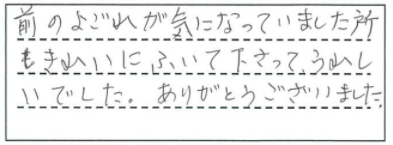 前のよごれが気になっていました所
もきれいにふいて下さって、うれし
いでした。ありがとうございました。